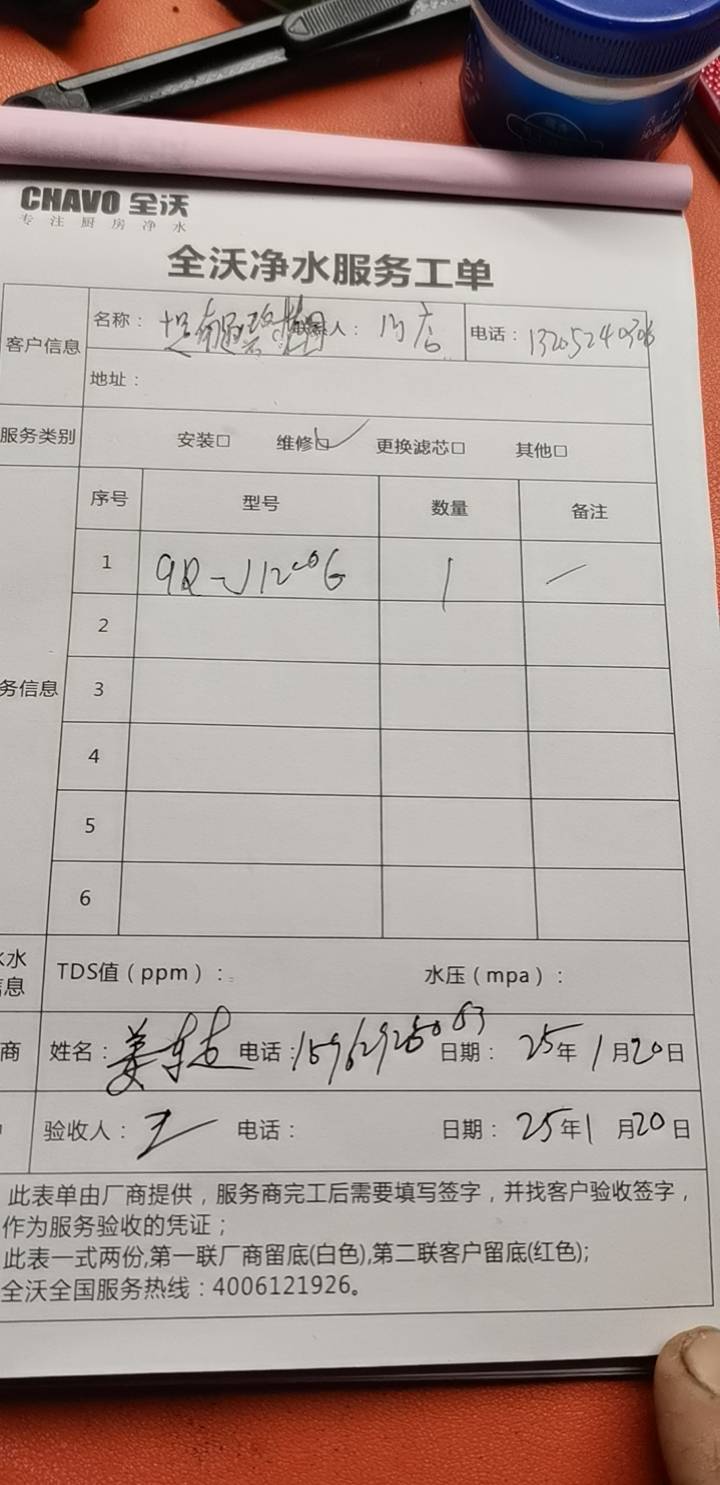 CHAVO 全沃
专注厨房净水
全沃净水服务工单
客户信息
名称： 人： 门店 电话：
地址：
服务类别 安装□ 维修□ 更换滤芯□ 其他□
序号 型号 数量 备注
1 QR-J1200G 1 —
2
务信息 3
4
5
6
水
信息 TDS值（ppm）： 水压（mpa）：
商 姓名：姜 电话：15962925083 日期：25年1月20日
验收人：王 电话： 日期：25年1月20日
此表单由厂商提供，服务商完工后需要填写签字，并找客户验收签字，
作为服务验收的凭证；
此表一式两份,第一联厂商留底(白色),第二联客户留底(红色);
全沃全国服务热线：4006121926。